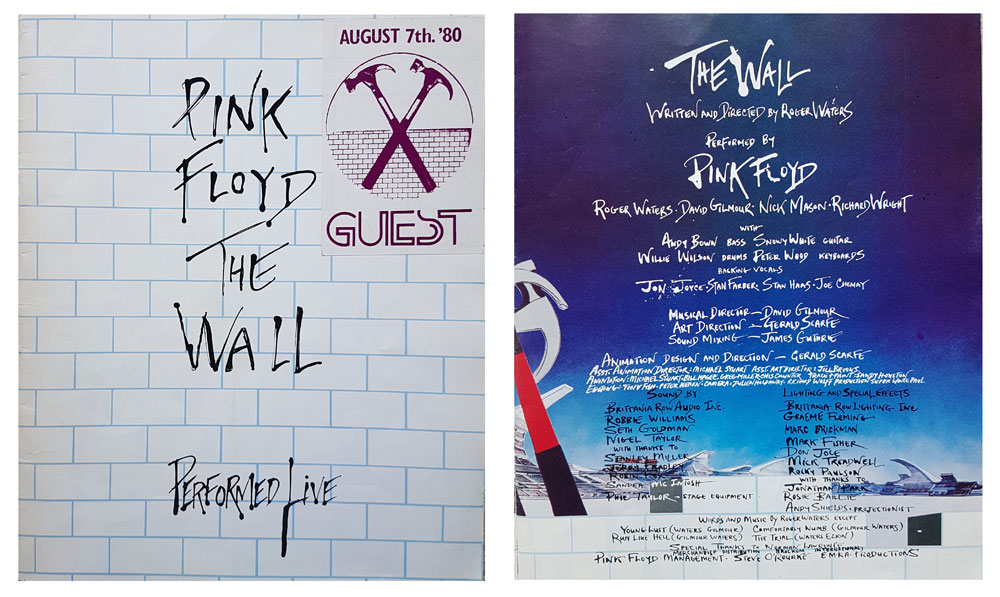 PINK
FLOYD
THE
WALL
PERFORMED LIVE
AUGUST 7th. '80
GUEST
THE WALL
WRITTEN AND DIRECTED BY ROGER WATERS
PERFORMED BY
PINK FLOYD
ROGER WATERS · DAVID GILMOUR · NICK MASON · RICHARD WRIGHT
WITH
ANDY BOWN BASS SNOWY WHITE GUITAR
WILLIE WILSON DRUMS PETER WOOD KEYBOARDS
BACKING VOCALS
JON JOYCE · STAN FARBER · STAN HAAS · JOE CHEMAY
MUSICAL DIRECTOR — DAVID GILMOUR
ART DIRECTION — GERALD SCARFE
SOUND MIXING — JAMES GUTHRIE
ANIMATION DESIGN AND DIRECTION — GERALD SCARFE
ASST. ANIMATION DIRECTOR: MICHAEL STUART ASST. ART DIRECTOR: JILL BROOKS
ANIMATION: MICHAEL STUART · BILL HAGEE · GREG MILLER · CHRIS CAUNTER TRACE + PAINT: SANDY HOUSTON
EDITING:
SOUND BY
BRITTANIA ROW AUDIO INC.
ROBBIE WILLIAMS
SETH GOLDMAN
NIGEL TAYLOR
WITH THANKS TO
STANLEY MILLER
JERRY BRADLEY
ROBIN
SANDRA MCINTOSH
PHIL TAYLOR - STAGE EQUIPMENT
LIGHTING AND SPECIAL EFFECTS
BRITTANIA ROW LIGHTING INC
GRAEME FLEMING
MARC BRICKMAN
MARK FISHER
DON JOLE
MICK TREADWELL
ROCKY PAULSON
WITH THANKS TO
JONATHAN PARK
ROSIE BAILLIE
ANDY SHIELDS · PROJECTIONIST
WORDS AND MUSIC BY ROGER WATERS EXCEPT
YOUNG LUST (WATERS GILMOUR) COMFORTABLY NUMB (GILMOUR WATERS)
RUN LIKE HELL (GILMOUR WATERS) THE TRIAL (WATERS EZRIN)
SPECIAL THANKS TO NORMAN LAWRENCE
MERCHANDISE DISTRIBUTION BROCKUM INTERNATIONAL
PINK FLOYD MANAGEMENT - STEVE O'ROURKE EMKA PRODUCTIONS